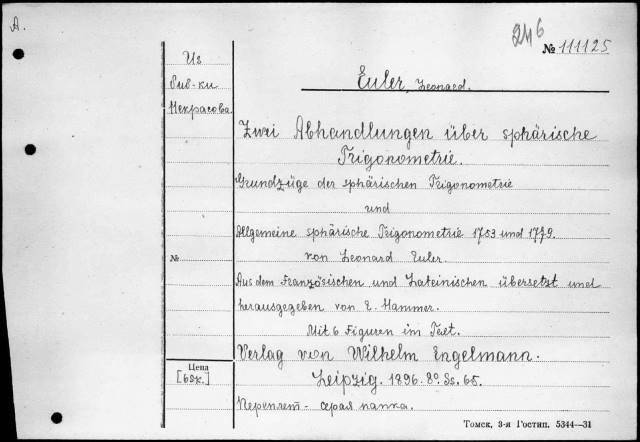 A.
24б
№ 111125
Из
биб-ки
Некрасова.
Euler, Leonard.
Zwei Abhandlungen über sphärische
Trigonometrie.
Grundzüge der sphärischen Trigonometrie
und
Allgemeine sphärische Trigonometrie 1753 und 1779.
von Leonard Euler.
№
Aus dem Französischen und Lateinischen übersetzt und
herausgegeben von E. Hammer.
Mit 6 Figuren im Text.
Verlag von Wilhelm Engelmann.
Цена
[60к.]
Leipzig. 1896. 8º. Ss. 65.
Переплет - серая папка.
Томск, 3-я Гостип. 5344—31